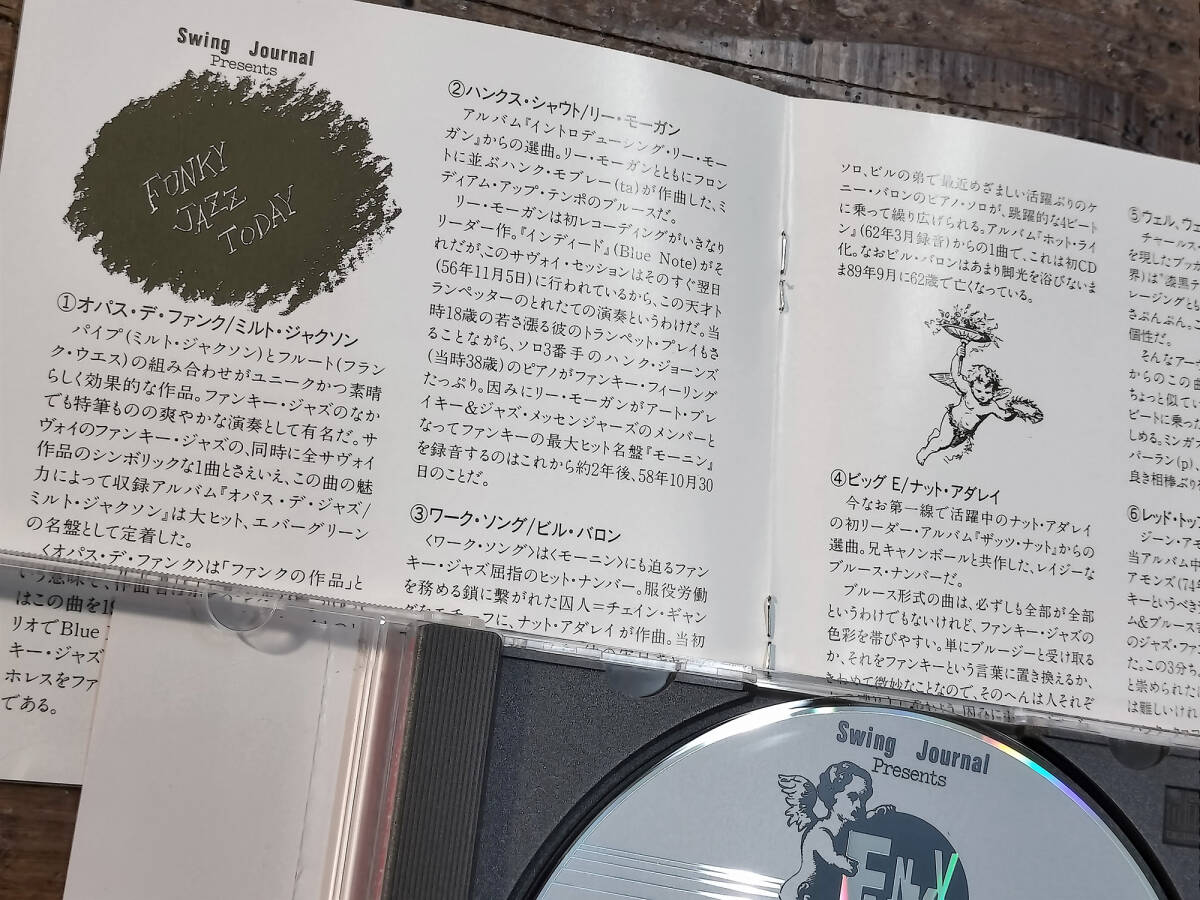 Swing Journal
Presents
FUNKY
JAZZ
TODAY
①オパス・デ・ファンク/ミルト・ジャクソン
パイプ(ミルト・ジャクソン)とフルート(フラン
ク・ウエス)の組み合わせがユニークかつ素晴
らしく効果的な作品。ファンキー・ジャズのなか
でも特筆ものの爽やかな演奏として有名だ。サ
ヴォイのファンキー・ジャズの、同時に全サヴォイ
作品のシンボリックな1曲とさえいえ、この曲の魅
力によって収録アルバム『オパス・デ・ジャズ/
ミルト・ジャクソン』は大ヒット、エバーグリーン
の名盤として定着した。
〈オパス・デ・ファンク〉は「ファンクの作品」と
はこの曲を1
リオでBlue
キー・ジャズ
ホレスをファ
である。
②ハンクス・シャウト/リー・モーガン
アルバム『イントロデューシング・リー・モー
ガン』からの選曲。リー・モーガンとともにフロン
トに並ぶハンク・モブレー(ta)が作曲した、ミ
ディアム・アップ・テンポのブルースだ。
リー・モーガンは初レコーディングがいきなり
リーダー作。『インディード』(Blue Note)がそ
れだが、このサヴォイ・セッションはそのすぐ翌日
(56年11月5日)に行われているから、この天才ト
ランペッターのとれたての演奏というわけだ。当
時18歳の若さ漲る彼のトランペット・プレイもさ
ることながら、ソロ3番手のハンク・ジョーンズ
(当時38歳)のピアノがファンキー・フィーリング
たっぷり。因みにリー・モーガンがアート・ブレ
イキー&ジャズ・メッセンジャーズのメンバーと
なってファンキーの最大ヒット名盤『モーニン』
を録音するのはこれから約2年後、58年10月30
日のことだ。
③ワーク・ソング/ビル・バロン
〈ワーク・ソング〉は〈モーニン〉にも迫るファン
キー・ジャズ屈指のヒット・ナンバー。服役労働
を務める鎖に繋がれた囚人=チェイン・ギャン
グをモチーフに、ナット・アダレイが作曲。当初
ソロ、ビルの弟で最近めざましい活躍ぶりのケ
ニー・バロンのピアノ・ソロが、跳躍的な4ビート
に乗って繰り広げられる。アルバム『ホット・ライ
ン』(62年3月録音)からの1曲で、これは初CD
化。なおビル・バロンはあまり脚光を浴びないま
ま89年9月に62歳で亡くなっている。
④ビッグ E/ナット・アダレイ
今なお第一線で活躍中のナット・アダレイ
の初リーダー・アルバム『ザッツ・ナット』からの
選曲。兄キャノンボールと共作した、レイジーな
ブルース・ナンバーだ。
ブルース形式の曲は、必ずしも全部が全部
というわけでもないけれど、ファンキー・ジャズの
色彩を帯びやすい。単にブルージーと受け取る
か、それをファンキーという言葉に置き換えるか、
きわめて微妙なことなので、そのへんは人それぞ
⑤ウェル、ウェ
チャールズ
を現したブッカ
界)は“漆黒テ
レージングと
さぷんぷん。
個性だ。
そんなアー
からのこの曲
ちょっと似てい
ビートに乗った
しめる。ミンガ
パーラン(p)、
良き相棒ぶり
⑥レッド・トッ
ジーン・アモ
当アルバム中
アモンズ(74年
キーというべき
ム&ブルース
のジャズ・ファ
た。この3分
と崇められた
は難しいけれ
Swing Journal
Presents